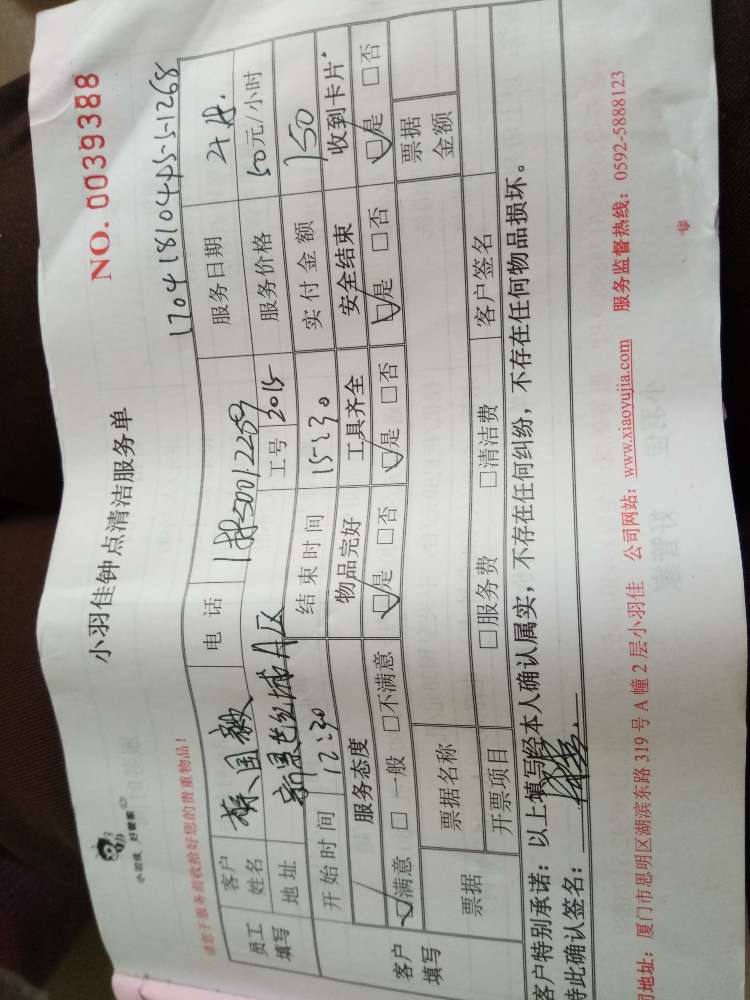 小羽佳 好管家
小羽佳钟点清洁服务单
NO. 0039388
请您于服务前收拾好您的贵重物品!
170418104PS-S-1268
员工填写
客户姓名 国
电 话
服务日期
地址 新景 城A区
工号 2015
服务价格 50元/小时
客户填写
开始时间 12:30
结束时间 15:30
实付金额 150
服务态度 物品完好 工具齐全 安全结束 收到卡片*
☑满意 □一般 □不满意 ☑是 □否 ☑是 □否 ☑是 □否 ☑是 □否
票据 票据名称 票据金额
开票项目 □服务费 □清洁费 客户签名
客户特别承诺:以上填写经本人确认属实,不存在任何纠纷,不存在任何物品损坏。
特此确认签名:
司地址:厦门市思明区湖滨东路319号A幢2层小羽佳 公司网站:www.xiaoyujia.com 服务监督热线:0592-5888123